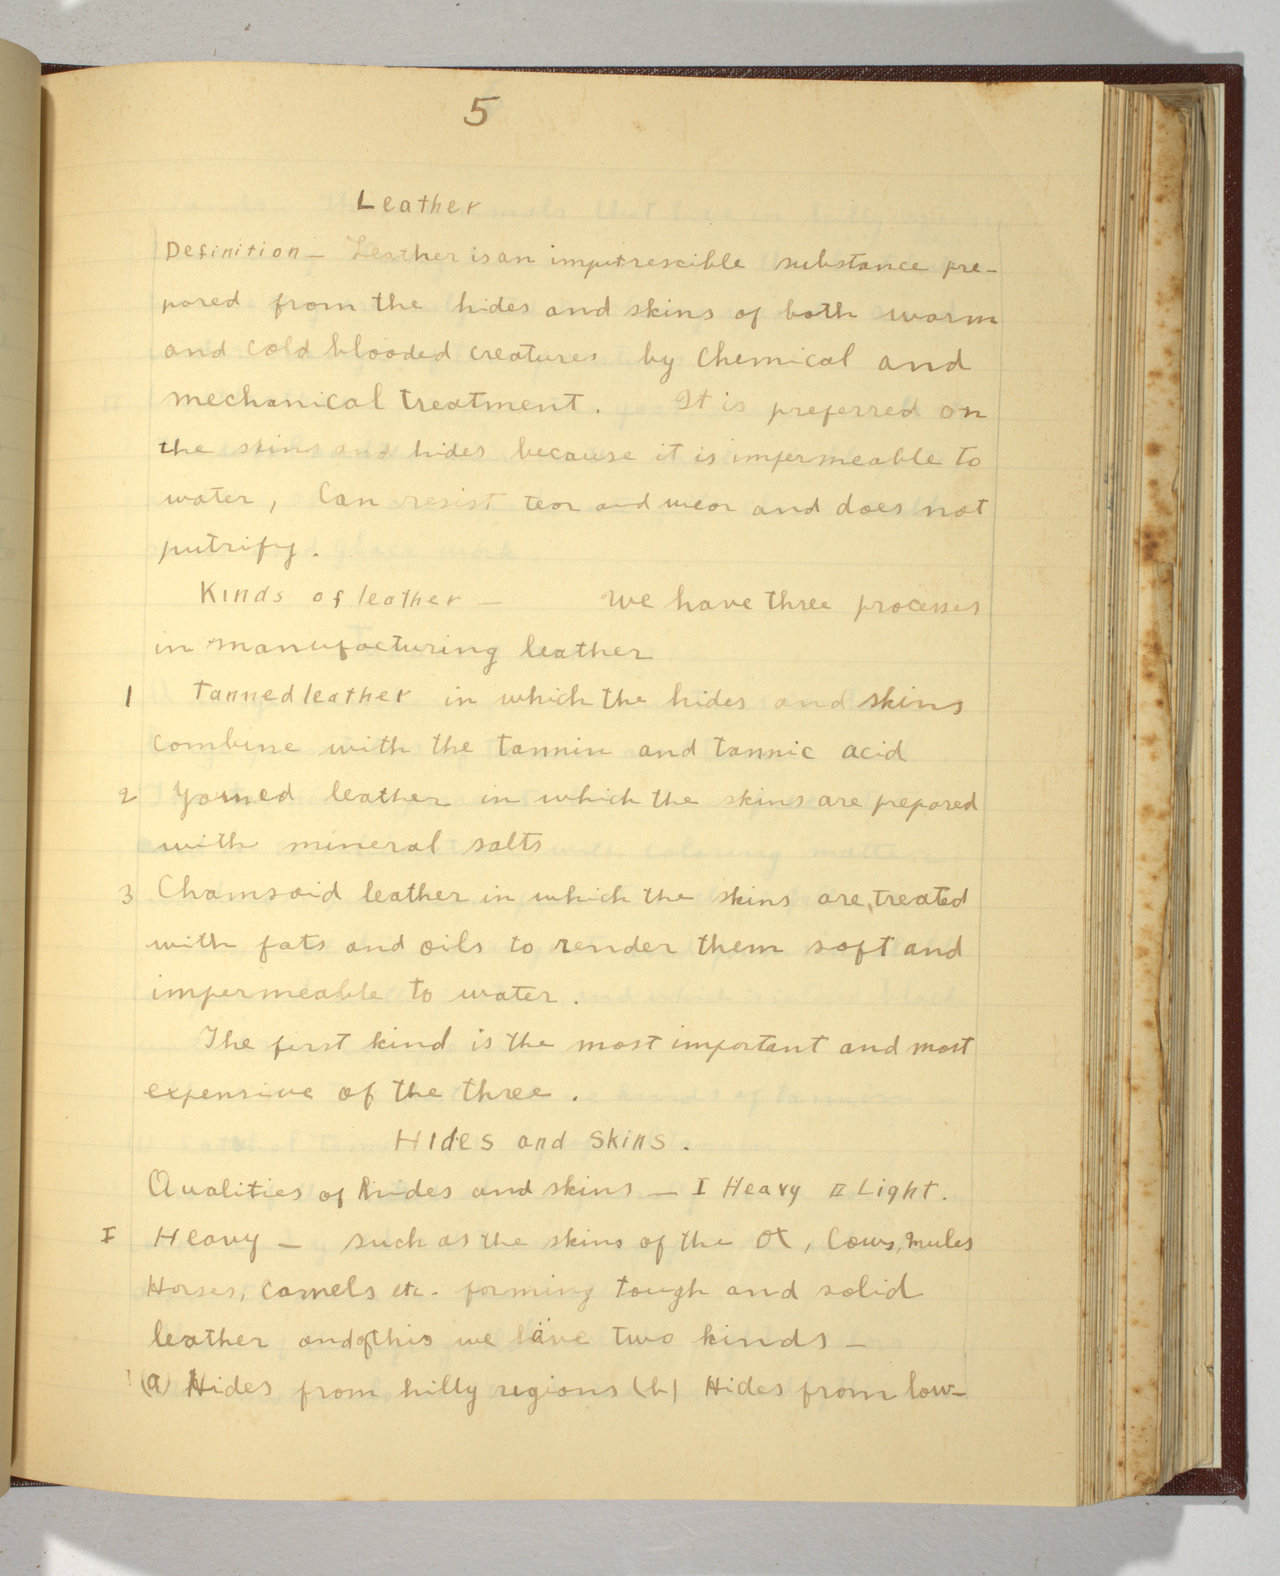 5
Leather
Definition – Leather is an imputrescible substance pre-
pared from the hides and skins of both warm
and cold blooded creatures by chemical and
mechanical treatment. It is preferred on
the skins and hides because it is impermeable to
water, Can resist tear and wear and does not
putrify.
Kinds of leather – We have three processes
in manufacturing leather
1 Tanned leather in which the hides and skins
combine with the tannin and tannic acid
2 leather in which the skins are prepared
with mineral salts
3 Chamsoid leather in which the skins are, treated
with fats and oils to render them soft and
impermeable to water.
The first kind is the most important and most
expensive of the three.
Hides and Skins.
Qualities of hides and skins – I Heavy II Light.
I Heavy – such as the skins of the Ox, Cows, Mules
Horses, camels etc. forming tough and solid
leather and of this we have two kinds –
(a) Hides from hilly regions (b) Hides from low-